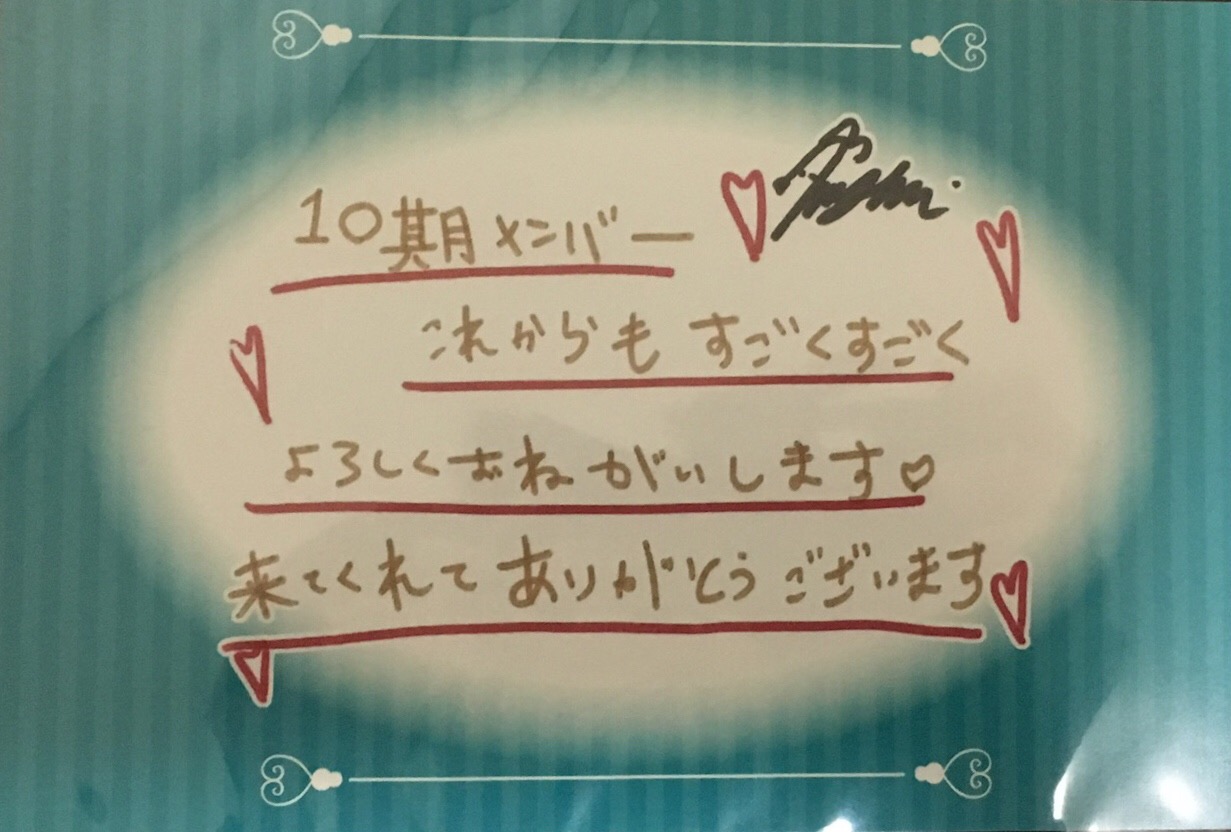 10期メンバー
これからも すごくすごく
よろしくおねがいします♡
来てくれて ありがとうございます